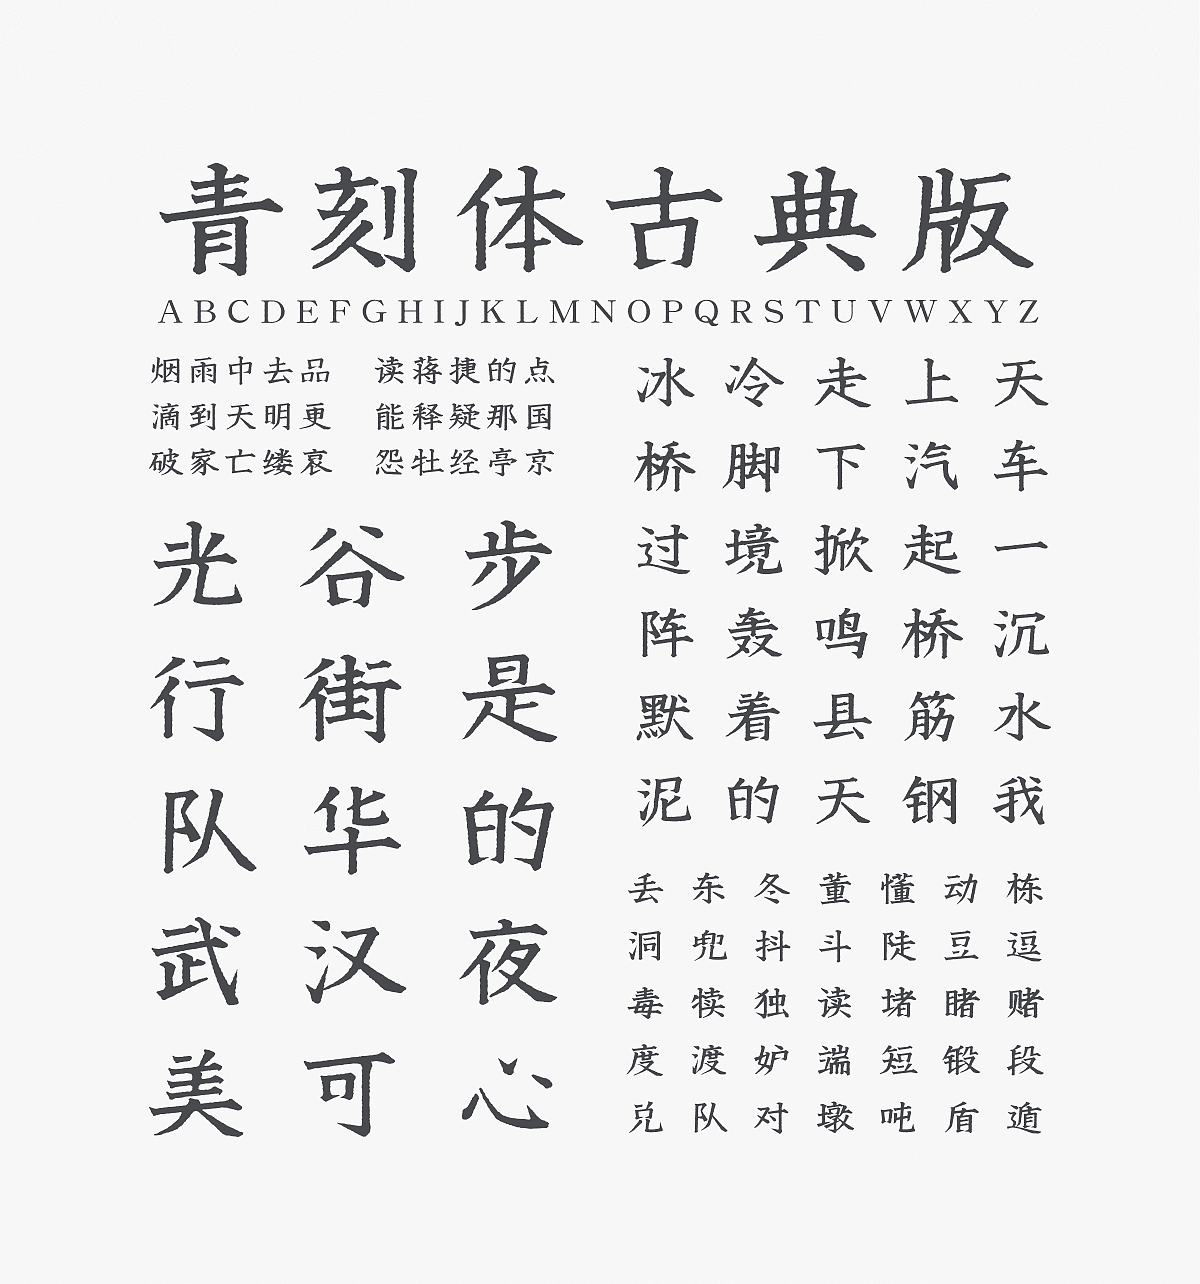 青刻体古典版
ABCDEFGHIJKLMNOPQRSTUVWXYZ
烟雨中去品 读蒋捷的点
滴到天明更 能释疑那国
破家亡缕哀 怨牡经亭京
光谷步
行街是
队华的
武汉夜
美可心
冰冷走上天
桥脚下汽车
过境掀起一
阵轰鸣桥沉
默着县筋水
泥的天钢我
丢东冬董懂动栋
洞兜抖斗陡豆逗
毒犊独读堵睹赌
度渡妒端短锻段
兑队对墩吨盾遁